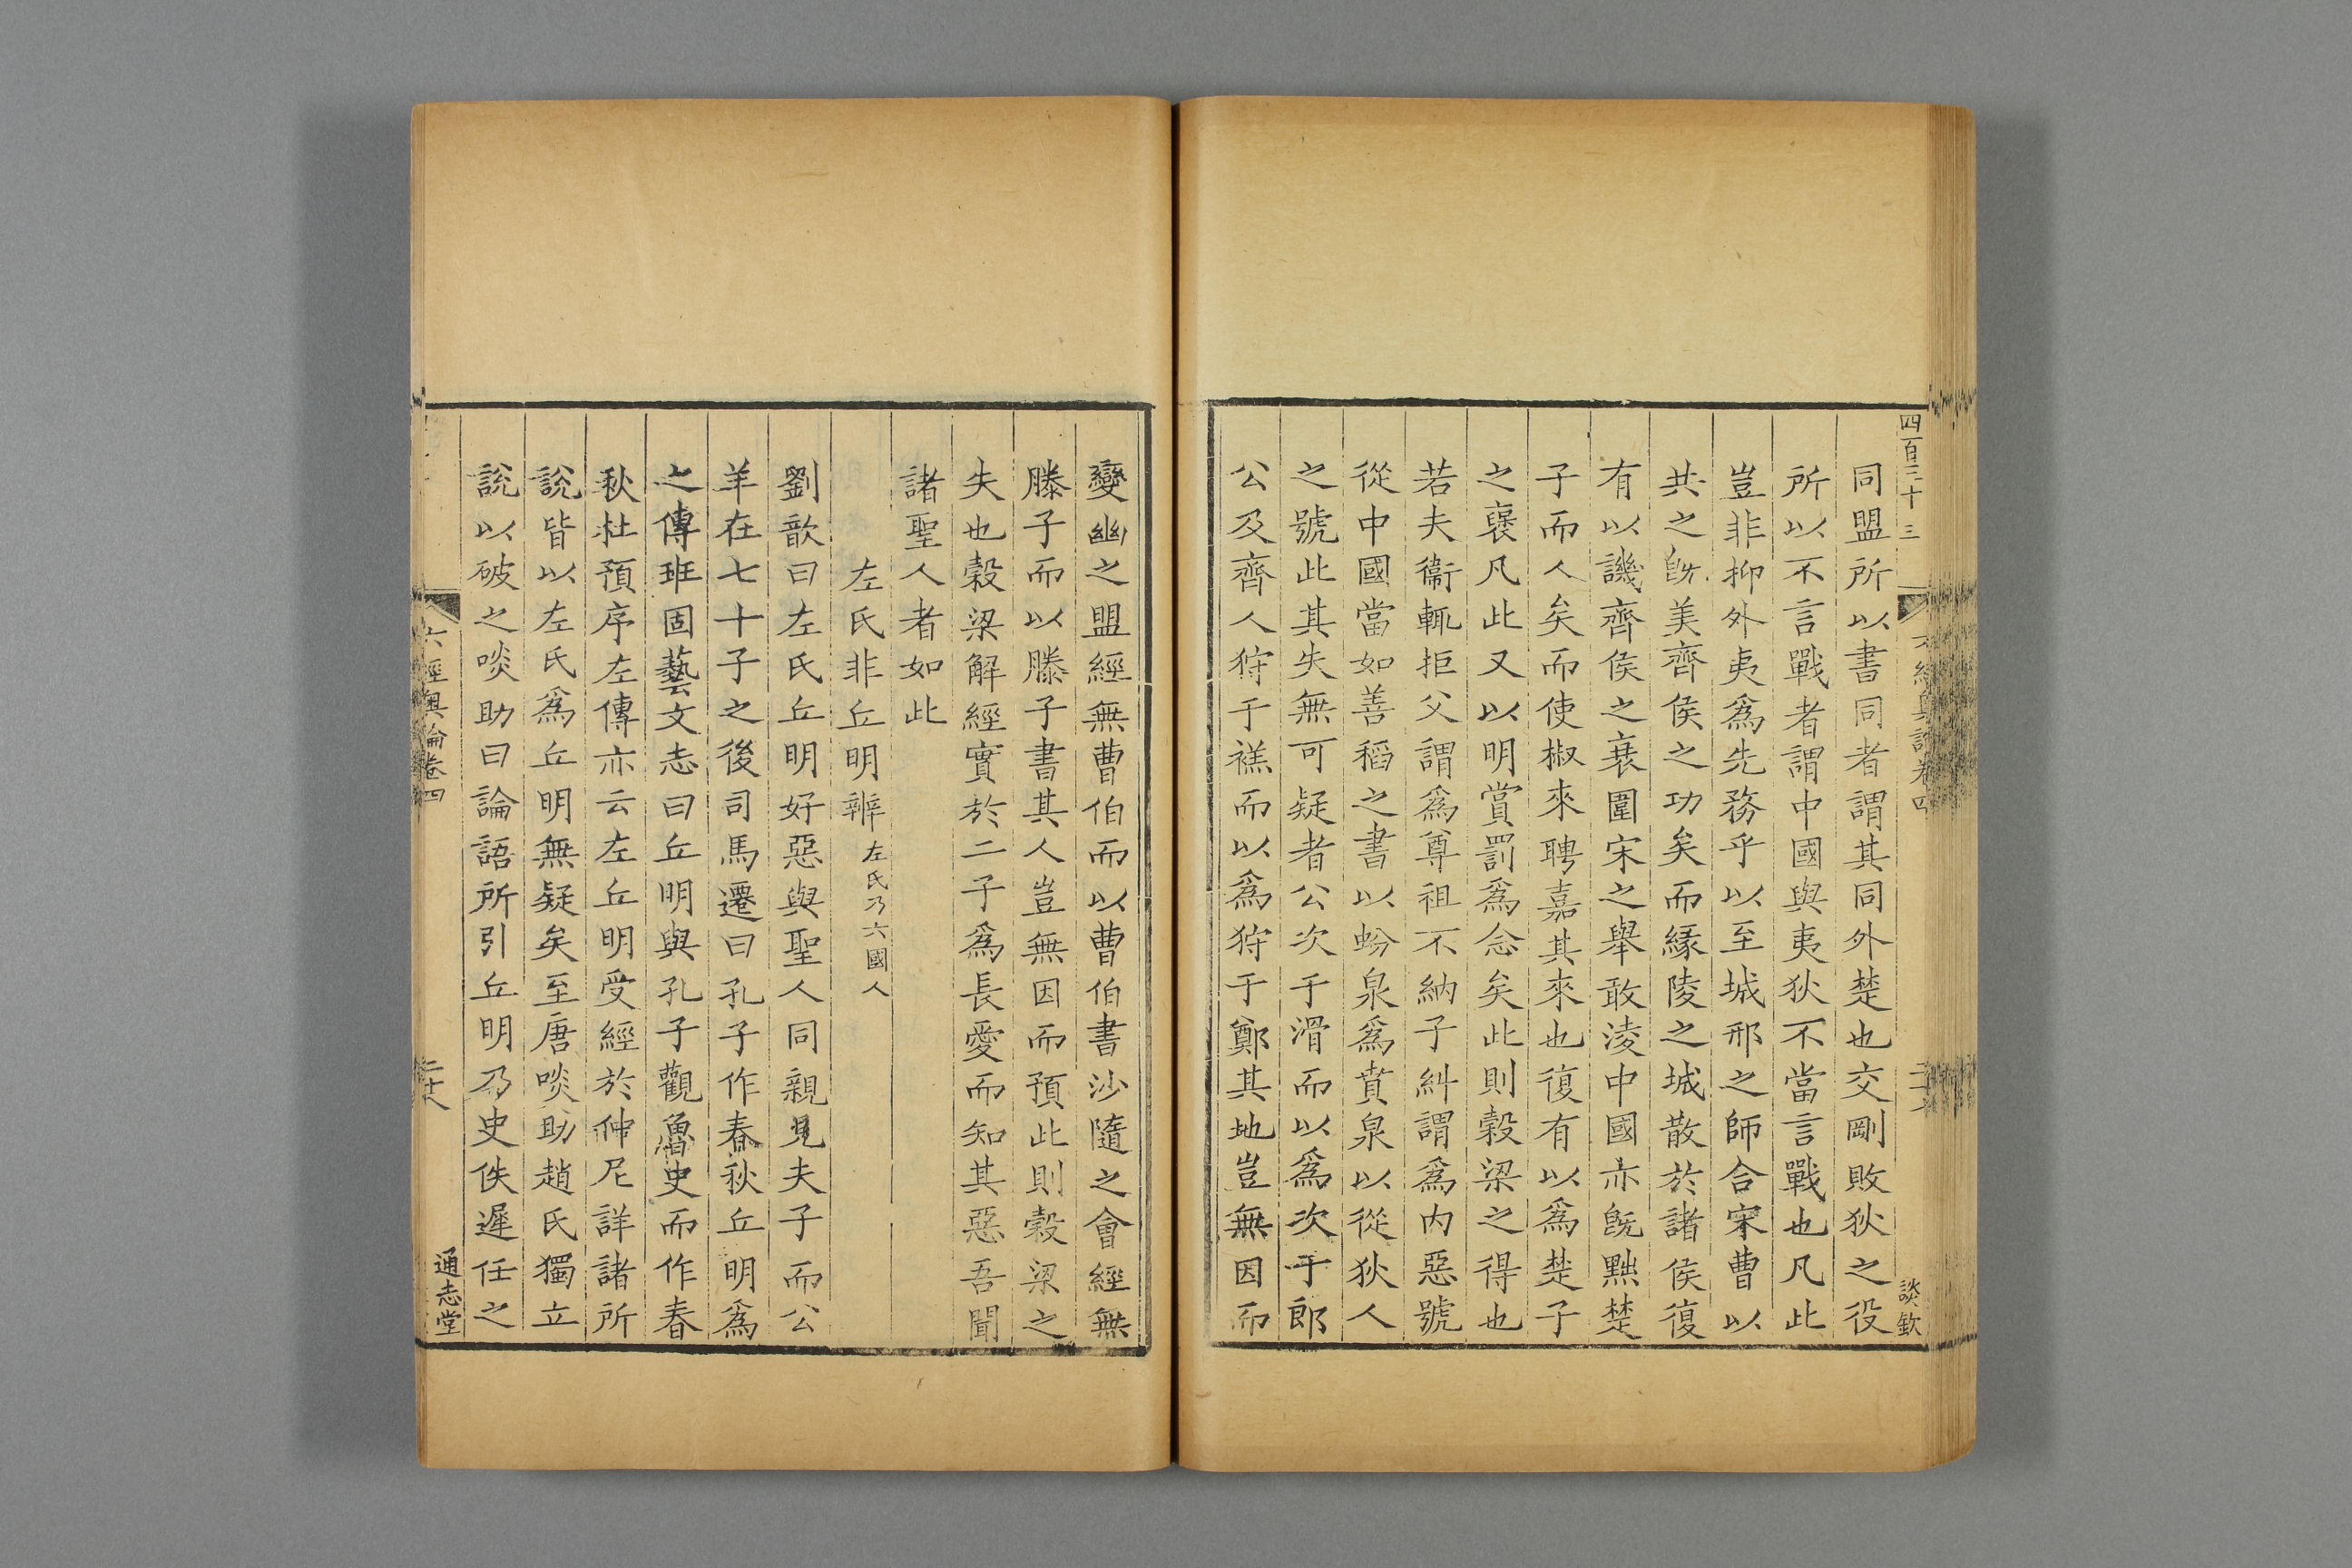 四百三十三
談欽
同盟所以書同者謂其同外楚也交剛敗狄之役
所以不言戰者謂中國與夷狄不當言戰也凡此
豈非抑外夷爲先務乎以至城邢之師合宋曹以
共之旣美齊侯之功矣而緣陵之城散於諸侯復
有以譏齊侯之衰圍宋之舉敢淩中國亦旣黜楚
子而人矣而使椒來聘嘉其來也復有以爲楚子
之褒凡此又以明賞罰爲念矣此則穀梁之得也
若夫衞輒拒父謂爲尊祖不納子糾謂爲内惡號
從中國當如善稻之書以蚡泉爲賁泉以從狄人
之號此其失無可疑者公次于滑而以爲次于郎
公及齊人狩于禚而以爲狩于鄭其地豈無因而
變幽之盟經無曹伯而以曹伯書沙隨之會經無
滕子而以滕子書其人豈無因而預此則穀梁之
失也穀梁解經實於二子爲長愛而知其惡吾聞
諸聖人者如此
左氏非丘明辨左氏乃六國人
劉歆曰左氏丘明好惡與聖人同親見夫子而公
羊在七十子之後司馬遷曰孔子作春秋丘明爲
之傳班固藝文志曰丘明與孔子觀魯史而作春
秋杜預序左傳亦云左丘明受經於仲尼詳諸所
說皆以左氏爲丘明無疑矣至唐啖助趙氏獨立
說以破之啖助曰論語所引丘明乃史佚遲任之
六經奧論卷四
二十八
通志堂